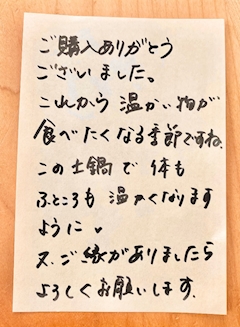 ご購入ありがとう
ございました。
これから 温かい物が
食べたくなる季節ですね。
この土鍋で 体も
ふところも 温かくなります
ように♥
又、ご縁がありましたら
よろしくお願いします。